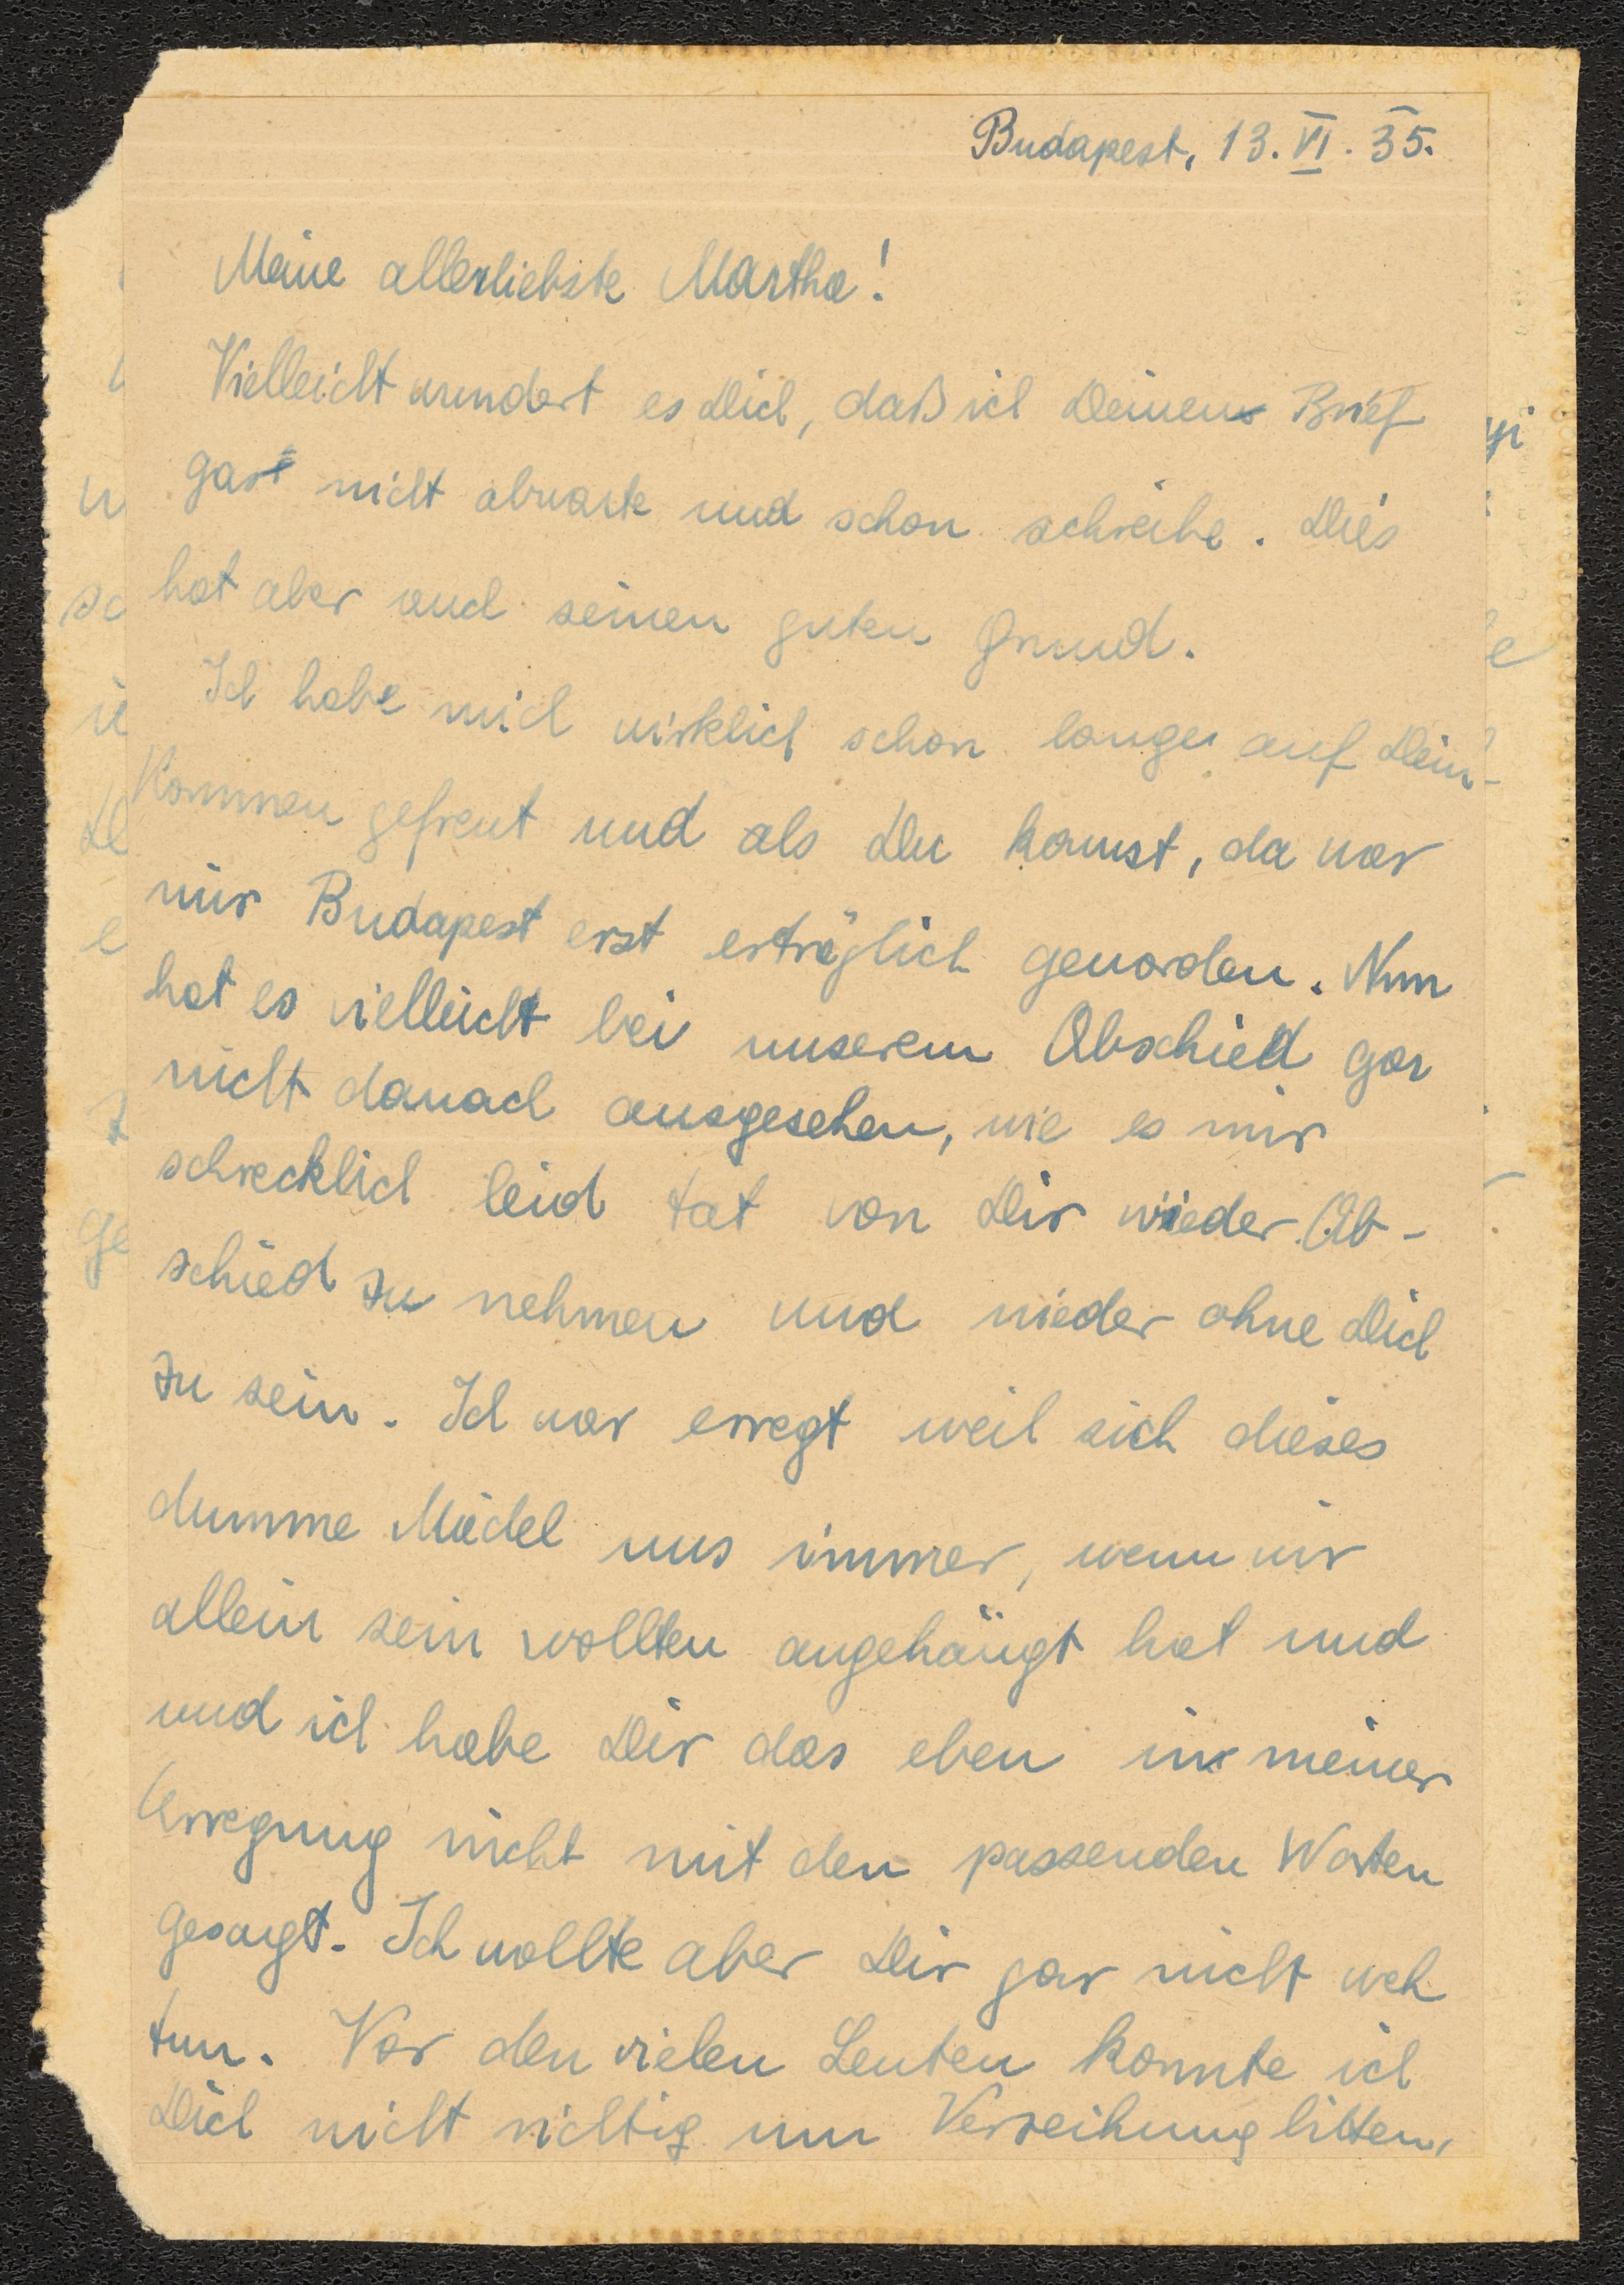 Budapest, 13. VI. 35.
Meine allerliebste Martha!
Vielleicht wundert es Dich, daß ich Deinen Brief
gar nicht abwarte und schon schreibe. Dies
hat aber auch seinen guten Grund.
Ich habe mich wirklich schon lange auf Dein
Kommen gefreut und als Du kamst, da war
mir Budapest erst erträglich geworden. Nun
hat es vielleicht bei unserem Abschied gar
nicht danach ausgesehen, wie es mir
schrecklich leid tat von Dir wieder Ab-
schied zu nehmen und wieder ohne Dich
zu sein. Ich war erregt weil sich dieses
dumme Mädel uns immer, wenn wir
allein sein wollten angehängt hat und
und ich habe Dir das eben in meiner
Erregung nicht mit den passenden Worten
gesagt. Ich wollte aber Dir gar nicht weh
tun. Vor den vielen Leuten konnte ich
Dich nicht richtig um Verzeihung bitten,